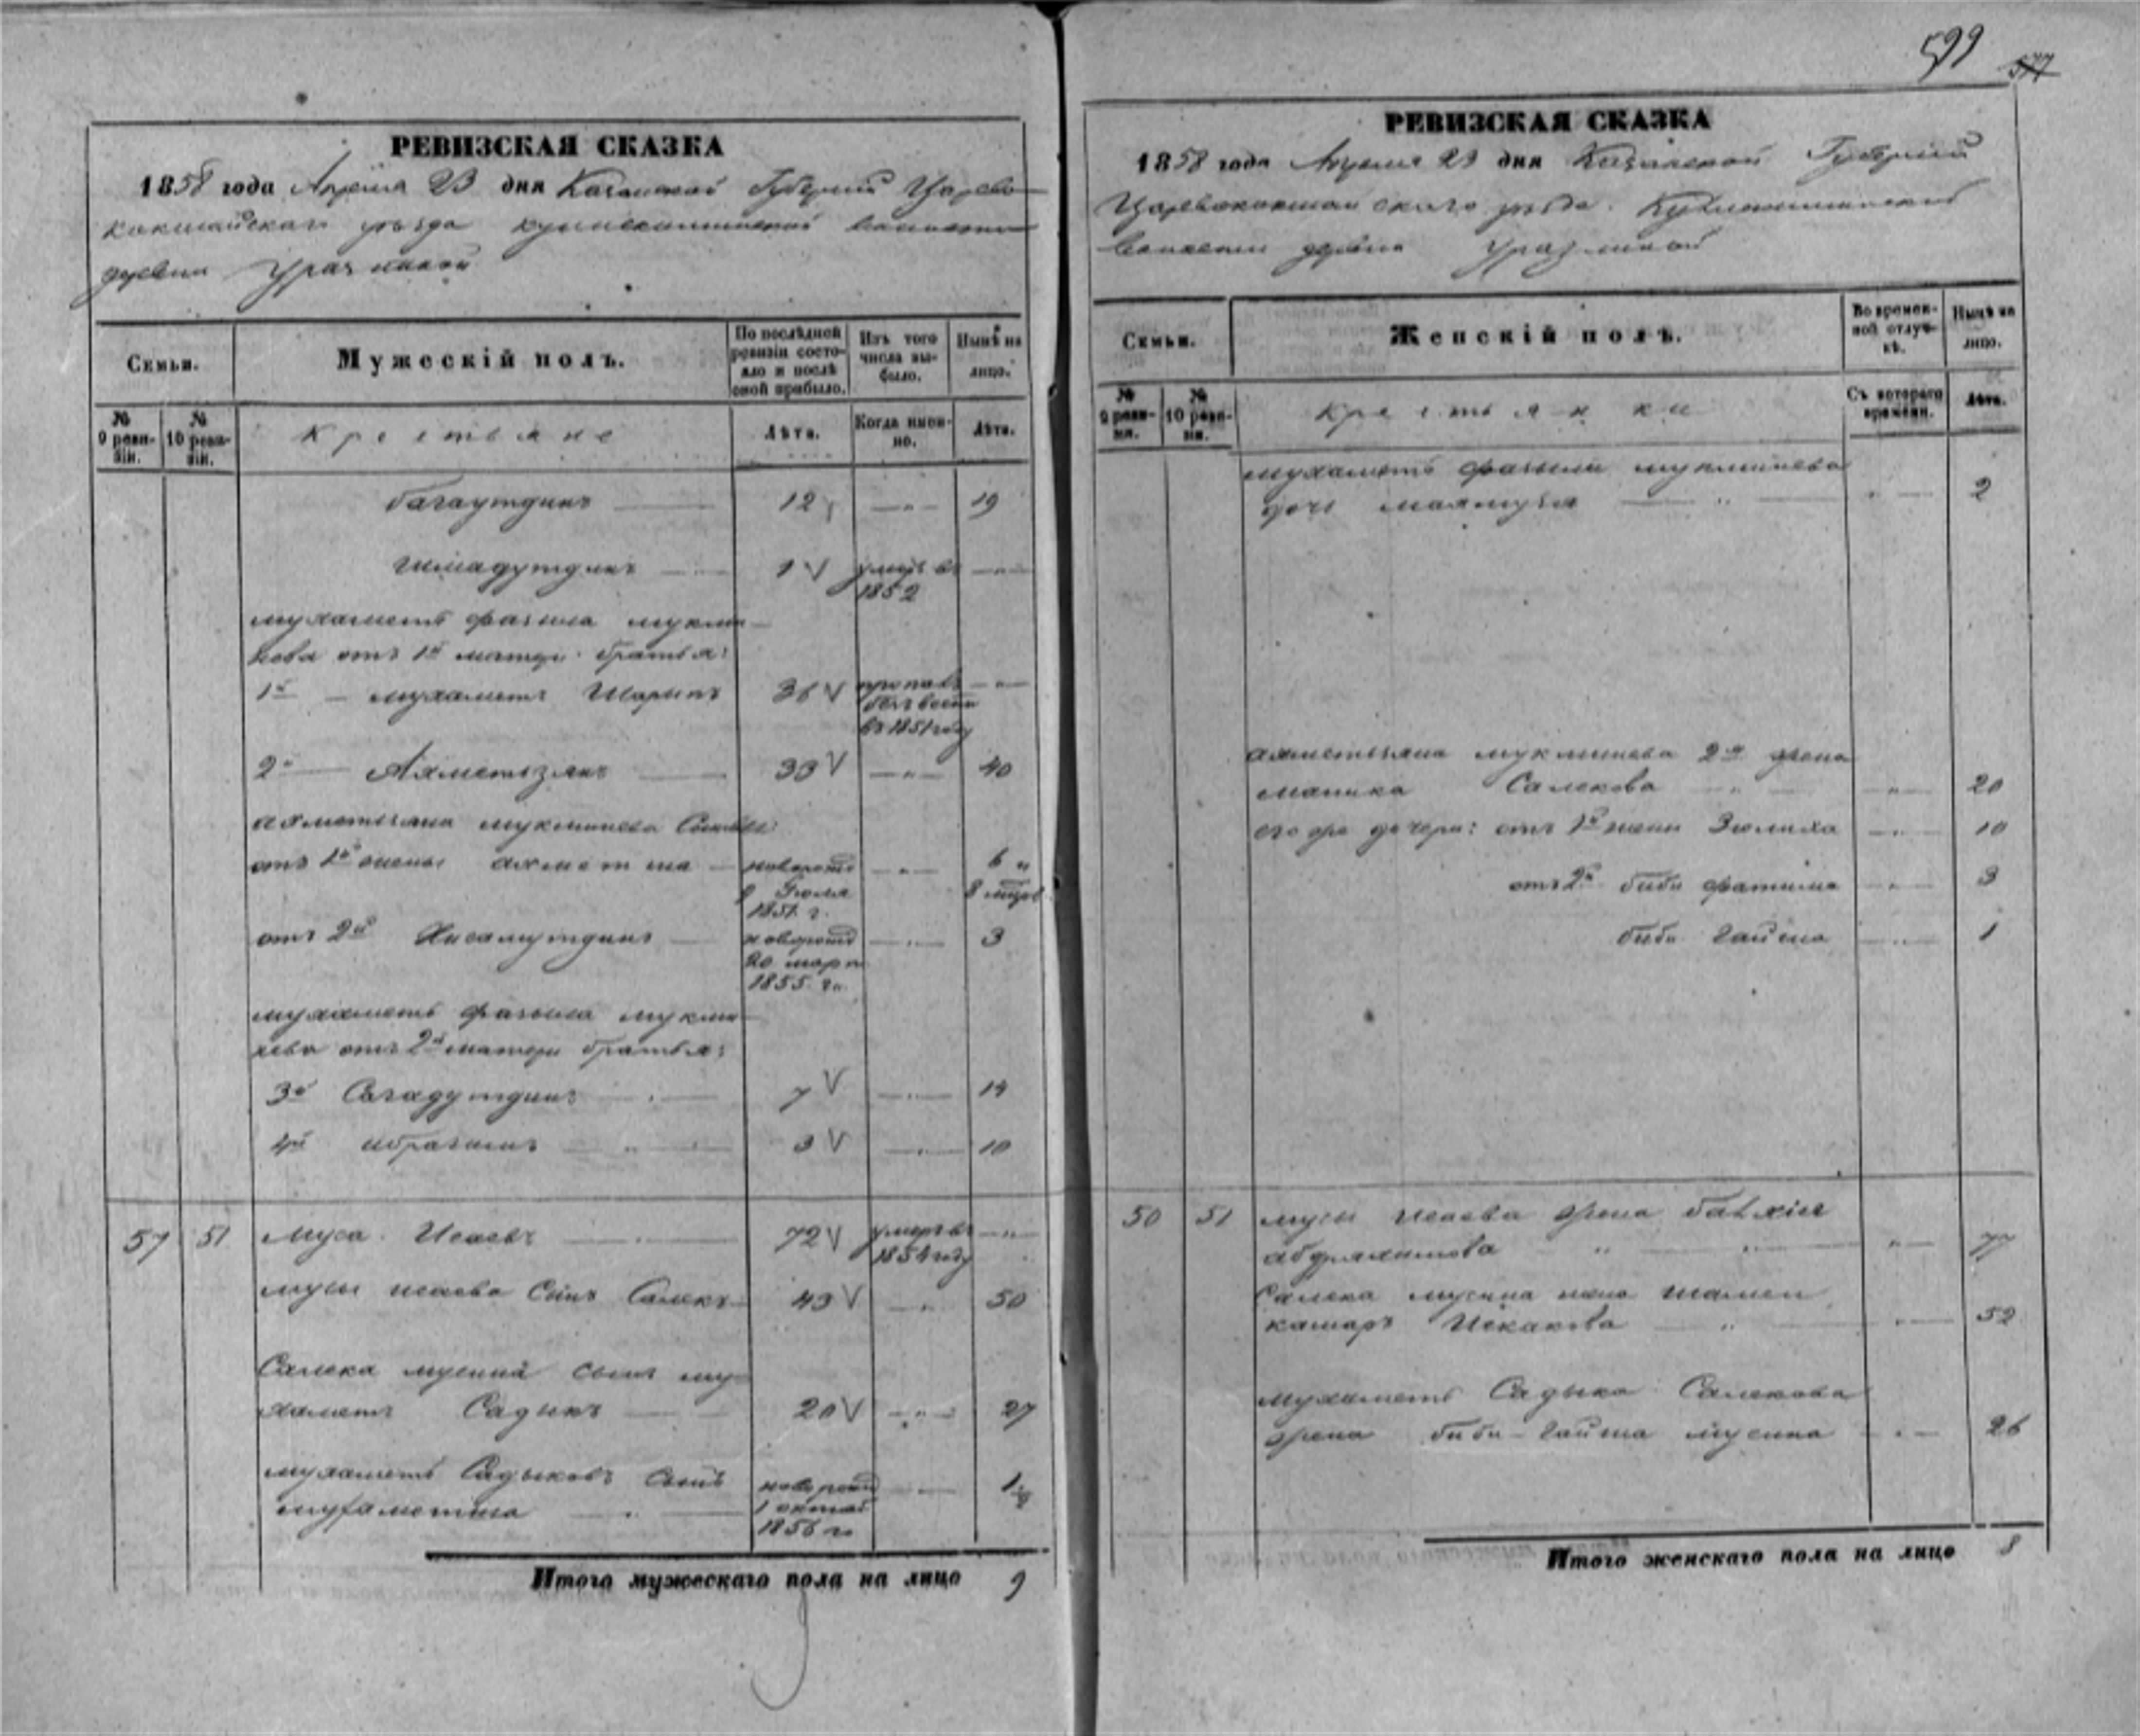 599
577
РЕВИЗСКАЯ СКАЗКА
1858 года Апреля 23 дня Казанской Губернiи Царево
кокшайскаго уѣзда волости
деревни
Семьи.
Мужескiй полъ.
По послѣдней ревизiи состояло и послѣ оной прибыло.
Изъ того числа выбыло.
Нынѣ на лицо.
№ 9 ревизiи.
№ 10 ревизiи.
Крестьяне
Лѣта.
Когда именно.
Лѣта.
багаутдинъ 12 19
1 умеръ въ 1852
мухаметъ фазыла мукми
нева отъ 1й матери братья:
1й мухаметъ Шарыпъ 36 пропалъ безъ вести въ 1851 году
2й Ахметьзянъ 33 40
ахметьзяна мукминева Сыновья
отъ 1й жены ахметша новорожд 1851 г. 6 8 мцовъ
отъ 2й Хисамутдинъ новорожд 20 март 1855 г. 3
мухаметъ фазыла мукми
нева отъ 2й матери братья:
3й Сагадутдинъ 7 14
4й ибрагимъ 3 10
57 51 Муса Исаевъ 72 умеръ въ 1854 году
мусы исаева Сынъ Салекъ 43 50
Салека мусина сынъ му
хаметъ Садыкъ 20 27
мухаметъ Садыковъ Сынъ
новорожд 1 октяб 1856 г. 1½
Итого мужескаго пола на лицо 9
РЕВИЗСКАЯ СКАЗКА
1858 года Апреля 23 дня Казанской Губернiи
Царевококшайскаго уѣзда
волости деревни
Семьи.
Женскiй полъ.
Во временной отлучкѣ.
Нынѣ на лицо.
№ 9 ревизiи.
№ 10 ревизiи.
Крестьянки
Съ котораго времени.
Лѣта.
мухаметъ фазыла мукминева
дочь 2
ахметьзяна мукминева 2я жена
малика Салекова 20
его же дочери: отъ 1й жены Зюлиха 10
отъ 2й биби фатыма 3
биби Гайша 1
50 51 мусы исаева жена
абдряхимова 77
Салека мусина жена шамси
камаръ Искакова 52
мухаметъ Садыка Салекова
жена биби-Гайша мусина 26
Итого женскаго пола на лицо 8